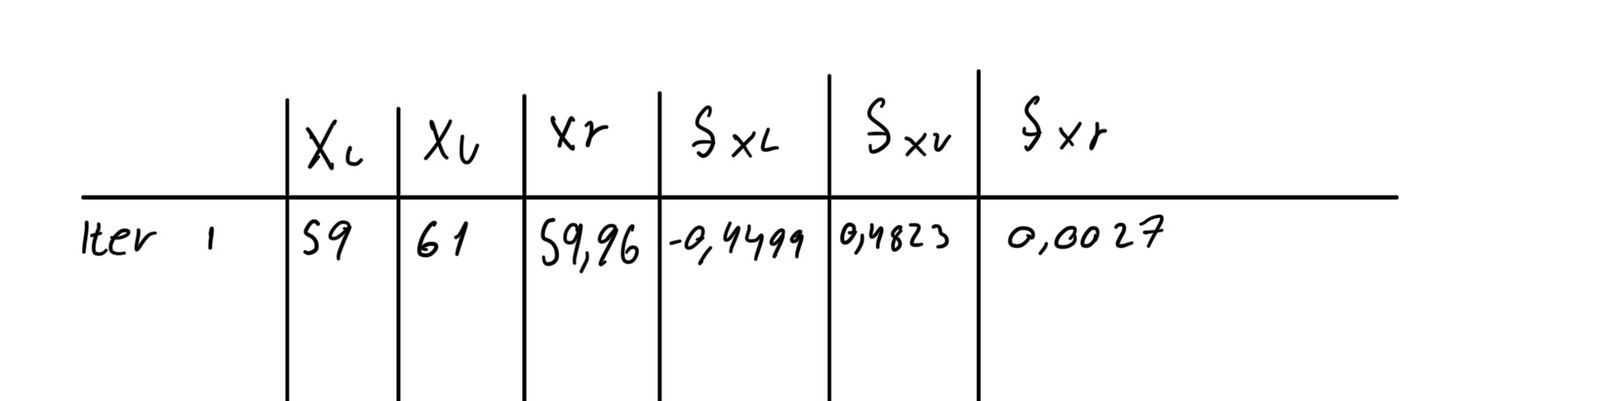 XL XU Xr fXL fXU fXr
Iter 1 59 61 59,96 -0,4499 0,4823 0,0027